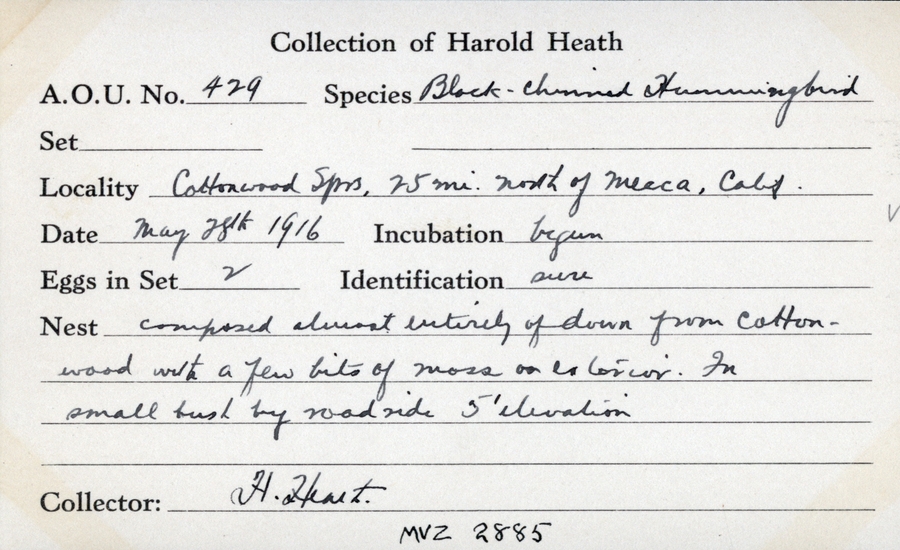 Collection of Harold Heath
A.O.U. No. 429 Species Black-chinned Hummingbird
Set
Locality Cottonwood Sprs, 25 mi. north of Mecca, Calif.
Date May 28th 1916 Incubation begun
Eggs in Set 2 Identification sure
Nest composed almost entirely of down from cotton-
wood with a few bits of moss on exterior. In
small bush by roadside 5' elevation
Collector: H. Heath.
MVZ 2885